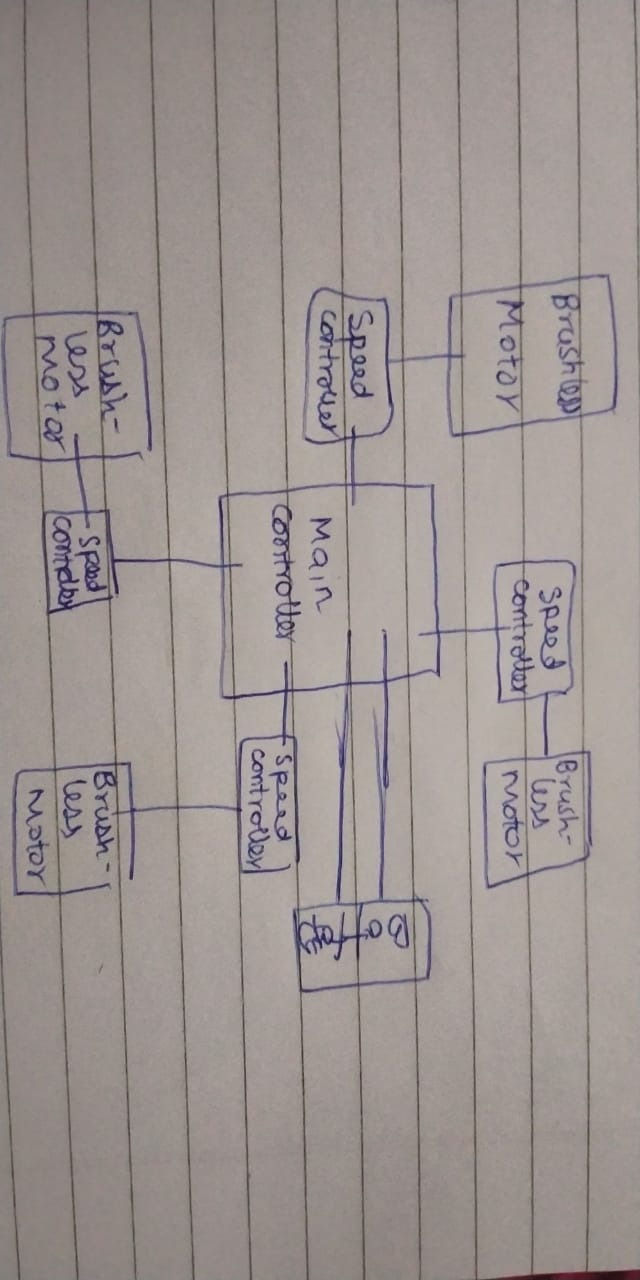 Brushless
Motor
Speed
controller
Brush-
less
Motor
Speed
controller
Battery
Main
controller
Speed
controller
Brush-
less
Motor
Speed
controller
Brush-
less
Motor